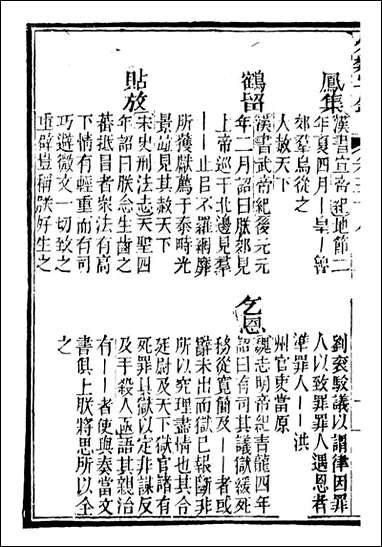 鳳集
漢書宣帝紀地節二
年夏四月—皇—魯
郡羣鳥從之
人赦天下
鶴留
漢書武帝紀後元元
年二月詔曰朕郊見
上帝巡于北邊見羣
——止㠯不羅網靡
所獲獻薦于泰畤光
景並見其赦天下
貼放
宋史刑法志天聖四
年詔曰朕念生齒之
蕃抵冒者衆法有高
下情有輕重而有司
巧避微文一切致之
重辟豈稱朕好生之
劉裒駁議以謂律因罪
人以致罪罪人遇恩者
準罪人——洪
州官吏當原
乞恩
魏志明帝紀青龍四年
詔曰有司其議獄緩死
務從寬簡及——者或
辭未出而獄已報斷非
所以究理盡情也其令
廷尉及天下獄官諸有
死罪具獄以定非謀反
及手殺人亟語其親治
有——者使與奏當文
書俱上朕將思所以全
之